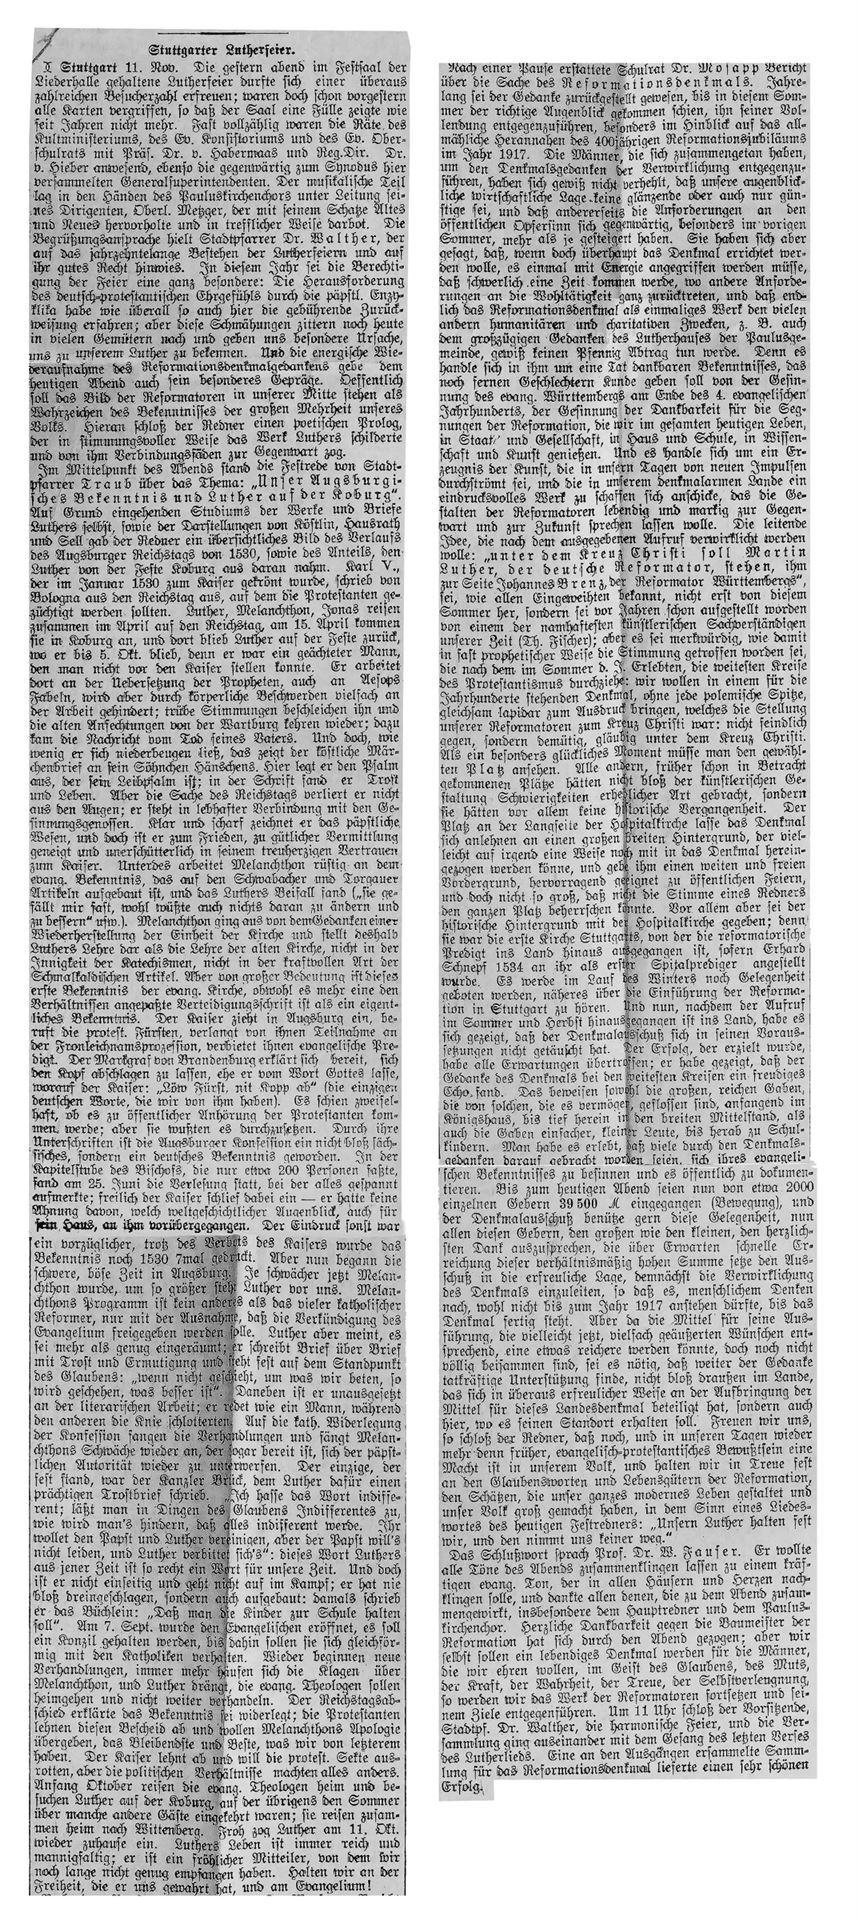 Stuttgarter Lutherfeier.
Stuttgart 11. Nov. Die gestern abend im Festsaal der
Liederhalle gehaltene Lutherfeier durfte sich einer überaus
zahlreichen Besucherzahl erfreuen; waren doch schon vorgestern
alle Karten vergriffen, so daß der Saal eine Fülle zeigte wie
seit Jahren nicht mehr. Fast vollzählig waren die Räte des
Kultministeriums, des Ev. Konsistoriums und des Ev. Ober-
schulrats mit Präs. Dr. v. Habermaas und Reg.Dir. Dr.
v. Hieber anwesend, ebenso die gegenwärtig zum Synodus hier
versammelten Generalsuperintendenten. Der musikalische Teil
lag in den Händen des Pauluskirchenchors unter Leitung sei-
nes Dirigenten, Oberl. Metzger, der mit seinem Schatze Altes
und Neues hervorholte und in trefflicher Weise darbot. Die
Begrüßungsansprache hielt Stadtpfarrer Dr. Walther, der
auf das jahrzehntelange Bestehen der Lutherfeiern und auf
ihr gutes Recht hinwies. In diesem Jahr sei die Berechti-
gung der Feier eine ganz besondere: Die Herausforderung
des deutsch-protestantischen Ehrgefühls durch die päpstl. Enzy-
klika habe wie überall so auch hier die gebührende Zurück-
weisung erfahren; aber diese Schmähungen zittern noch heute
in vielen Gemütern nach und geben uns besondere Ursache,
uns zu unserem Luther zu bekennen. Und die energische Wie-
deraufnahme des Reformationsdenkmalgedankens gebe dem
heutigen Abend auch sein besonderes Gepräge. Oeffentlich
soll das Bild der Reformatoren in unserer Mitte stehen als
Wahrzeichen des Bekenntnisses der großen Mehrheit unseres
Volks. Hieran schloß der Redner einen poetischen Prolog,
der in stimmungsvoller Weise das Werk Luthers schilderte
und von ihm Verbindungsfäden zur Gegenwart zog.
Im Mittelpunkt des Abends stand die Festrede von Stadt-
pfarrer Traub über das Thema: „Unser Augsburgi-
sches Bekenntnis und Luther auf der Koburg“.
Auf Grund eingehenden Studiums der Werke und Briefe
Luthers selbst, sowie der Darstellungen von Köstlin, Hausrath
und Sell gab der Redner ein übersichtliches Bild des Verlaufs
des Augsburger Reichstags von 1530, sowie des Anteils, den
Luther von der Feste Koburg aus daran nahm. Karl V.,
der im Januar 1530 zum Kaiser gekrönt wurde, schrieb von
Bologna aus den Reichstag aus, auf dem die Protestanten ge-
züchtigt werden sollten. Luther, Melanchthon, Jonas reisen
zusammen im April auf den Reichstag, am 15. April kommen
sie in Koburg an, und dort blieb Luther auf der Feste zurück,
wo er bis 5. Okt. blieb, denn er war ein geächteter Mann,
den man nicht vor den Kaiser stellen konnte. Er arbeitet
dort an der Uebersetzung der Propheten, auch an Aesops
Fabeln, wird aber durch körperliche Beschwerden vielfach an
der Arbeit gehindert; trübe Stimmungen beschleichen ihn und
die alten Anfechtungen von der Wartburg kehren wieder; dazu
kam die Nachricht vom Tod seines Vaters. Und doch, wie
wenig er sich niederbeugen ließ, das zeigt der köstliche Mär-
chenbrief an sein Söhnchen Hänschens. Hier legt er den Psalm
aus, der sein Leibpsalm ist; in der Schrift fand er Trost
und Leben. Aber die Sache des Reichstags verliert er nicht
aus den Augen; er steht in lebhafter Verbindung mit den Ge-
sinnungsgenossen. Klar und scharf zeichnet er das päpstliche
Wesen, und doch ist er zum Frieden, zu gütlicher Vermittlung
geneigt und unerschütterlich in seinem treuherzigen Vertrauen
zum Kaiser. Unterdes arbeitet Melanchthon rüstig an dem
evang. Bekenntnis, das auf den Schwabacher und Torgauer
Artikeln aufgebaut ist, und das Luthers Beifall fand („sie ge-
fällt mir fast, wohl wüßte auch nichts daran zu ändern und
zu bessern“ usw.). Melanchthon ging aus von dem Gedanken einer
Wiederherstellung der Einheit der Kirche und stellt deshalb
Luthers Lehre dar als die Lehre der alten Kirche, nicht in der
Innigkeit der Katechismen, nicht in der kraftvollen Art der
Schmalkaldischen Artikel. Aber von großer Bedeutung ist dieses
erste Bekenntnis der evang. Kirche, obwohl es mehr eine den
Verhältnissen angepaßte Verteidigungsschrift ist als ein eigent-
liches Bekenntnis. Der Kaiser zieht in Augsburg ein, be-
ruft die protest. Fürsten, verlangt von ihnen Teilnahme an
der Fronleichnamsprozession, verbietet ihnen evangelische Pre-
digt. Der Markgraf von Brandenburg erklärt sich bereit, sich
den Kopf abschlagen zu lassen, ehe er vom Wort Gottes lasse,
worauf der Kaiser: „Löw Fürst, nit Kopp ab“ (die einzigen
deutschen Worte, die wir von ihm haben). Es schien zweifel-
haft, ob es zu öffentlicher Anhörung der Protestanten kom-
men werde; aber sie wußten es durchzusetzen. Durch ihre
Unterschriften ist die Augsburger Konfession ein nicht bloß säch-
sisches, sondern ein deutsches Bekenntnis geworden. In der
Kapitelstube des Bischofs, die nur etwa 200 Personen faßte,
fand am 25. Juni die Verlesung statt, bei der alles gespannt
aufmerkte; freilich der Kaiser schlief dabei ein — er hatte keine
Ahnung davon, welch weltgeschichtlicher Augenblick, auch für
sein Haus, an ihm vorübergegangen. Der Eindruck sonst war
ein vorzüglicher, trotz des Verbots des Kaisers wurde das
Bekenntnis noch 1530 7mal gedruckt. Aber nun begann die
schwere, böse Zeit in Augsburg. Je schwächer jetzt Melan-
chthon wurde, um so größer steht Luther vor uns. Melan-
chthons Programm ist kein anderes als das vieler katholischer
Reformer, nur mit der Ausnahme, daß die Verkündigung des
Evangelium freigegeben werden solle. Luther aber meint, es
sei mehr als genug eingeräumt; er schreibt Brief über Brief
mit Trost und Ermutigung und steht fest auf dem Standpunkt
des Glaubens: „wenn nicht geschieht, um was wir beten, so
wird geschehen, was besser ist“. Daneben ist er unausgesetzt
an der literarischen Arbeit; er redet wie ein Mann, während
den anderen die Knie schlotterten. Auf die kath. Widerlegung
der Konfession fangen die Verhandlungen und fängt Melan-
chthons Schwäche wieder an, der sogar bereit ist, sich der päpst-
lichen Autorität wieder zu unterwerfen. Der einzige, der
fest stand, war der Kanzler Brück, dem Luther dafür einen
prächtigen Trostbrief schrieb. „Ich hasse das Wort indiffe-
rent; läßt man in Dingen des Glaubens Indifferentes zu,
wie wird man's hindern, daß alles indifferent werde. Ihr
wollet den Papst und Luther vereinigen, aber der Papst will's
nicht leiden, und Luther verbittet sich's“: dieses Wort Luthers
aus jener Zeit ist so recht ein Wort für unsere Zeit. Und doch
ist er nicht einseitig und geht nicht auf im Kampf; er hat nie
bloß dreingeschlagen, sondern auch aufgebaut: damals schrieb
er das Büchlein: „Daß man die Kinder zur Schule halten
soll“. Am 7. Sept. wurde den Evangelischen eröffnet, es soll
ein Konzil gehalten werden, bis dahin sollen sie sich gleichför-
mig mit den Katholiken verhalten. Wieder beginnen neue
Verhandlungen, immer mehr häufen sich die Klagen über
Melanchthon, und Luther drängt, die evang. Theologen sollen
heimgehen und nicht weiter verhandeln. Der Reichstagsab-
schied erklärte das Bekenntnis sei widerlegt; die Protestanten
lehnen diesen Bescheid ab und wollen Melanchthons Apologie
übergeben, das Bleibendste und Beste, was wir von letzterem
haben. Der Kaiser lehnt ab und will die protest. Sekte aus-
rotten, aber die politischen Verhältnisse machten alles anders.
Anfang Oktober reisen die evang. Theologen heim und be-
suchen Luther auf der Koburg, auf der übrigens den Sommer
über manche andere Gäste eingekehrt waren; sie reisen zusam-
men heim nach Wittenberg. Froh zog Luther am 11. Okt.
wieder zuhause ein. Luthers Leben ist immer reich und
mannigfaltig; er ist ein fröhlicher Mitteiler, von dem wir
noch lange nicht genug empfangen haben. Halten wir an der
Freiheit, die er uns gewahrt hat, und am Evangelium!
Nach einer Pause erstattete Schulrat Dr. Mosapp Bericht
über die Sache des Reformationsdenkmals. Jahre-
lang sei der Gedanke zurückgestellt gewesen, bis in diesem Som-
mer der richtige Augenblick gekommen schien, ihn seiner Vol-
lendung entgegenzuführen, besonders im Hinblick auf das all-
mähliche Herannahen des 400jährigen Reformationsjubiläums
im Jahr 1917. Die Männer, die sich zusammengetan haben,
um den Denkmalsgedanken der Verwirklichung entgegenzu-
führen, haben sich gewiß nicht verhehlt, daß unsere augenblick-
liche wirtschaftliche Lage keine glänzende oder auch nur gün-
stige sei, und daß andererseits die Anforderungen an den
öffentlichen Opfersinn sich gegenwärtig, besonders im vorigen
Sommer, mehr als je gesteigert haben. Sie haben sich aber
gesagt, daß, wenn doch überhaupt das Denkmal errichtet wer-
den wolle, es einmal mit Energie angegriffen werden müsse,
daß schwerlich eine Zeit kommen werde, wo andere Anforde-
rungen an die Wohltätigkeit ganz zurücktreten, und daß end-
lich das Reformationsdenkmal als einmaliges Werk den vielen
andern humanitären und charitativen Zwecken, z. B. auch
dem großzügigen Gedanken des Lutherhauses der Paulusge-
meinde, gewiß keinen Pfennig Abtrag tun werde. Denn es
handle sich in ihm um eine Tat dankbaren Bekenntnisses, das
noch fernen Geschlechtern Kunde geben soll von der Gesin-
nung des evang. Württembergs am Ende des 4. evangelischen
Jahrhunderts, der Gesinnung der Dankbarkeit für die Seg-
nungen der Reformation, die wir im gesamten heutigen Leben,
in Staat und Gesellschaft, in Haus und Schule, in Wissen-
schaft und Kunst genießen. Und es handle sich um ein Er-
zeugnis der Kunst, die in unsern Tagen von neuen Impulsen
durchströmt sei, und die in unserem denkmalarmen Lande ein
eindrucksvolles Werk zu schaffen sich anschicke, das die Ge-
stalten der Reformatoren lebendig und markig zur Gegen-
wart und zur Zukunft sprechen lassen wolle. Die leitende
Idee, die nach dem ausgegebenen Aufruf verwirklicht werden
wolle: „unter dem Kreuz Christi soll Martin
Luther, der deutsche Reformator, stehen, ihm
zur Seite Johannes Brenz, der Reformator Württembergs“,
sei, wie allen Eingeweihten bekannt, nicht erst von diesem
Sommer her, sondern sei vor Jahren schon aufgestellt worden
von einem der namhaftesten künstlerischen Sachverständigen
unserer Zeit (Th. Fischer); aber es sei merkwürdig, wie damit
in fast prophetischer Weise die Stimmung getroffen worden sei,
die nach dem im Sommer d. J. Erlebten, die weitesten Kreise
des Protestantismus durchziehe: wir wollen in einem für die
Jahrhunderte stehenden Denkmal, ohne jede polemische Spitze,
gleichsam lapidar zum Ausdruck bringen, welches die Stellung
unserer Reformatoren zum Kreuz Christi war: nicht feindlich
gegen, sondern demütig, gläubig unter dem Kreuz Christi.
Als ein besonders glückliches Moment müsse man den gewähl-
ten Platz ansehen. Alle andern, früher schon in Betracht
gekommenen Plätze hätten nicht bloß der künstlerischen Ge-
staltung Schwierigkeiten erheblicher Art gebracht, sondern
sie hätten vor allem keine historische Vergangenheit. Der
Platz an der Langseite der Hospitalkirche lasse das Denkmal
sich anlehnen an einen großen breiten Hintergrund, der viel-
leicht auf irgend eine Weise noch mit in das Denkmal herein-
gezogen werden könne, und gebe ihm einen weiten und freien
Vordergrund, hervorragend geeignet zu öffentlichen Feiern,
und doch nicht so groß, daß nicht die Stimme eines Redners
den ganzen Platz beherrschen könnte. Vor allem aber sei der
historische Hintergrund mit der Hospitalkirche gegeben; denn
sie war die erste Kirche Stuttgarts, von der die reformatorische
Predigt ins Land hinaus ausgegangen ist, sofern Erhard
Schnepf 1534 an ihr als erster Spitalprediger angestellt
wurde. Es werde im Lauf des Winters noch Gelegenheit
geboten werden, näheres über die Einführung der Reforma-
tion in Stuttgart zu hören. Und nun, nachdem der Aufruf
im Sommer und Herbst hinausgegangen ist ins Land, habe es
sich gezeigt, daß der Denkmalausschuß sich in seinen Voraus-
setzungen nicht getäuscht hat. Der Erfolg, der erzielt wurde,
habe alle Erwartungen übertroffen; er habe gezeigt, daß der
Gedanke des Denkmals bei den weitesten Kreisen ein freudiges
Echo fand. Das beweisen sowohl die großen, reichen Gaben,
die von solchen, die es vermögen, geflossen sind, anfangend im
Königshaus, bis tief herein in den breiten Mittelstand, als
auch die Gaben einfacher, kleiner Leute, bis herab zu Schul-
kindern. Man habe es erlebt, daß viele durch den Denkmals-
gedanken darauf gebracht worden seien, sich ihres evangeli-
schen Bekenntnisses zu besinnen und es öffentlich zu dokumen-
tieren. Bis zum heutigen Abend seien nun von etwa 2000
einzelnen Gebern 39500 M eingegangen (Bewegung), und
der Denkmalausschuß benütze gern diese Gelegenheit, nun
allen diesen Gebern, den großen wie den kleinen, den herzlich-
sten Dank auszusprechen, die über Erwarten schnelle Er-
reichung dieser verhältnismäßig hohen Summe setze den Aus-
schuß in die erfreuliche Lage, demnächst die Verwirklichung
des Denkmals einzuleiten, so daß es, menschlichem Denken
nach, wohl nicht bis zum Jahr 1917 anstehen dürfte, bis das
Denkmal fertig steht. Aber da die Mittel für seine Aus-
führung, die vielleicht jetzt, vielfach geäußerten Wünschen ent-
sprechend, eine etwas reichere werden könnte, doch noch nicht
völlig beisammen sind, sei es nötig, daß weiter der Gedanke
tatkräftige Unterstützung finde, nicht bloß draußen im Lande,
das sich in überaus erfreulicher Weise an der Aufbringung der
Mittel für dieses Landesdenkmal beteiligt hat, sondern auch
hier, wo es seinen Standort erhalten soll. Freuen wir uns,
so schloß der Redner, daß noch, und in unseren Tagen wieder
mehr denn früher, evangelisch-protestantisches Bewußtsein eine
Macht ist in unserem Volk, und halten wir in Treue fest
an den Glaubensworten und Lebensgütern der Reformation,
den Schätzen, die unser ganzes modernes Leben gestaltet und
unser Volk groß gemacht haben, in dem Sinn eines Liedes-
wortes des heutigen Festredners: „Unsern Luther halten fest
wir, und den nimmt uns keiner weg.“
Das Schlußwort sprach Prof. Dr. W. Fauser. Er wollte
alle Töne des Abends zusammenklingen lassen zu einem kräf-
tigen evang. Ton, der in allen Häusern und Herzen nach-
klingen solle, und dankte allen denen, die zu dem Abend zusam-
mengewirkt, insbesondere dem Hauptredner und dem Paulus-
kirchenchor. Herzliche Dankbarkeit gegen die Baumeister der
Reformation hat sich durch den Abend gezogen; aber wir
selbst sollen ein lebendiges Denkmal werden für die Männer,
die wir ehren wollen, im Geist des Glaubens, des Muts,
der Kraft, der Wahrheit, der Treue, der Selbstverleugnung,
so werden wir das Werk der Reformatoren fortsetzen und sei-
nem Ziele entgegenführen. Um 11 Uhr schloß der Vorsitzende,
Stadtpf. Dr. Walther, die harmonische Feier, und die Ver-
sammlung ging auseinander mit dem Gesang des letzten Verses
des Lutherlieds. Eine an den Ausgängen ersammelte Samm-
lung für das Reformationsdenkmal lieferte einen sehr schönen
Erfolg.